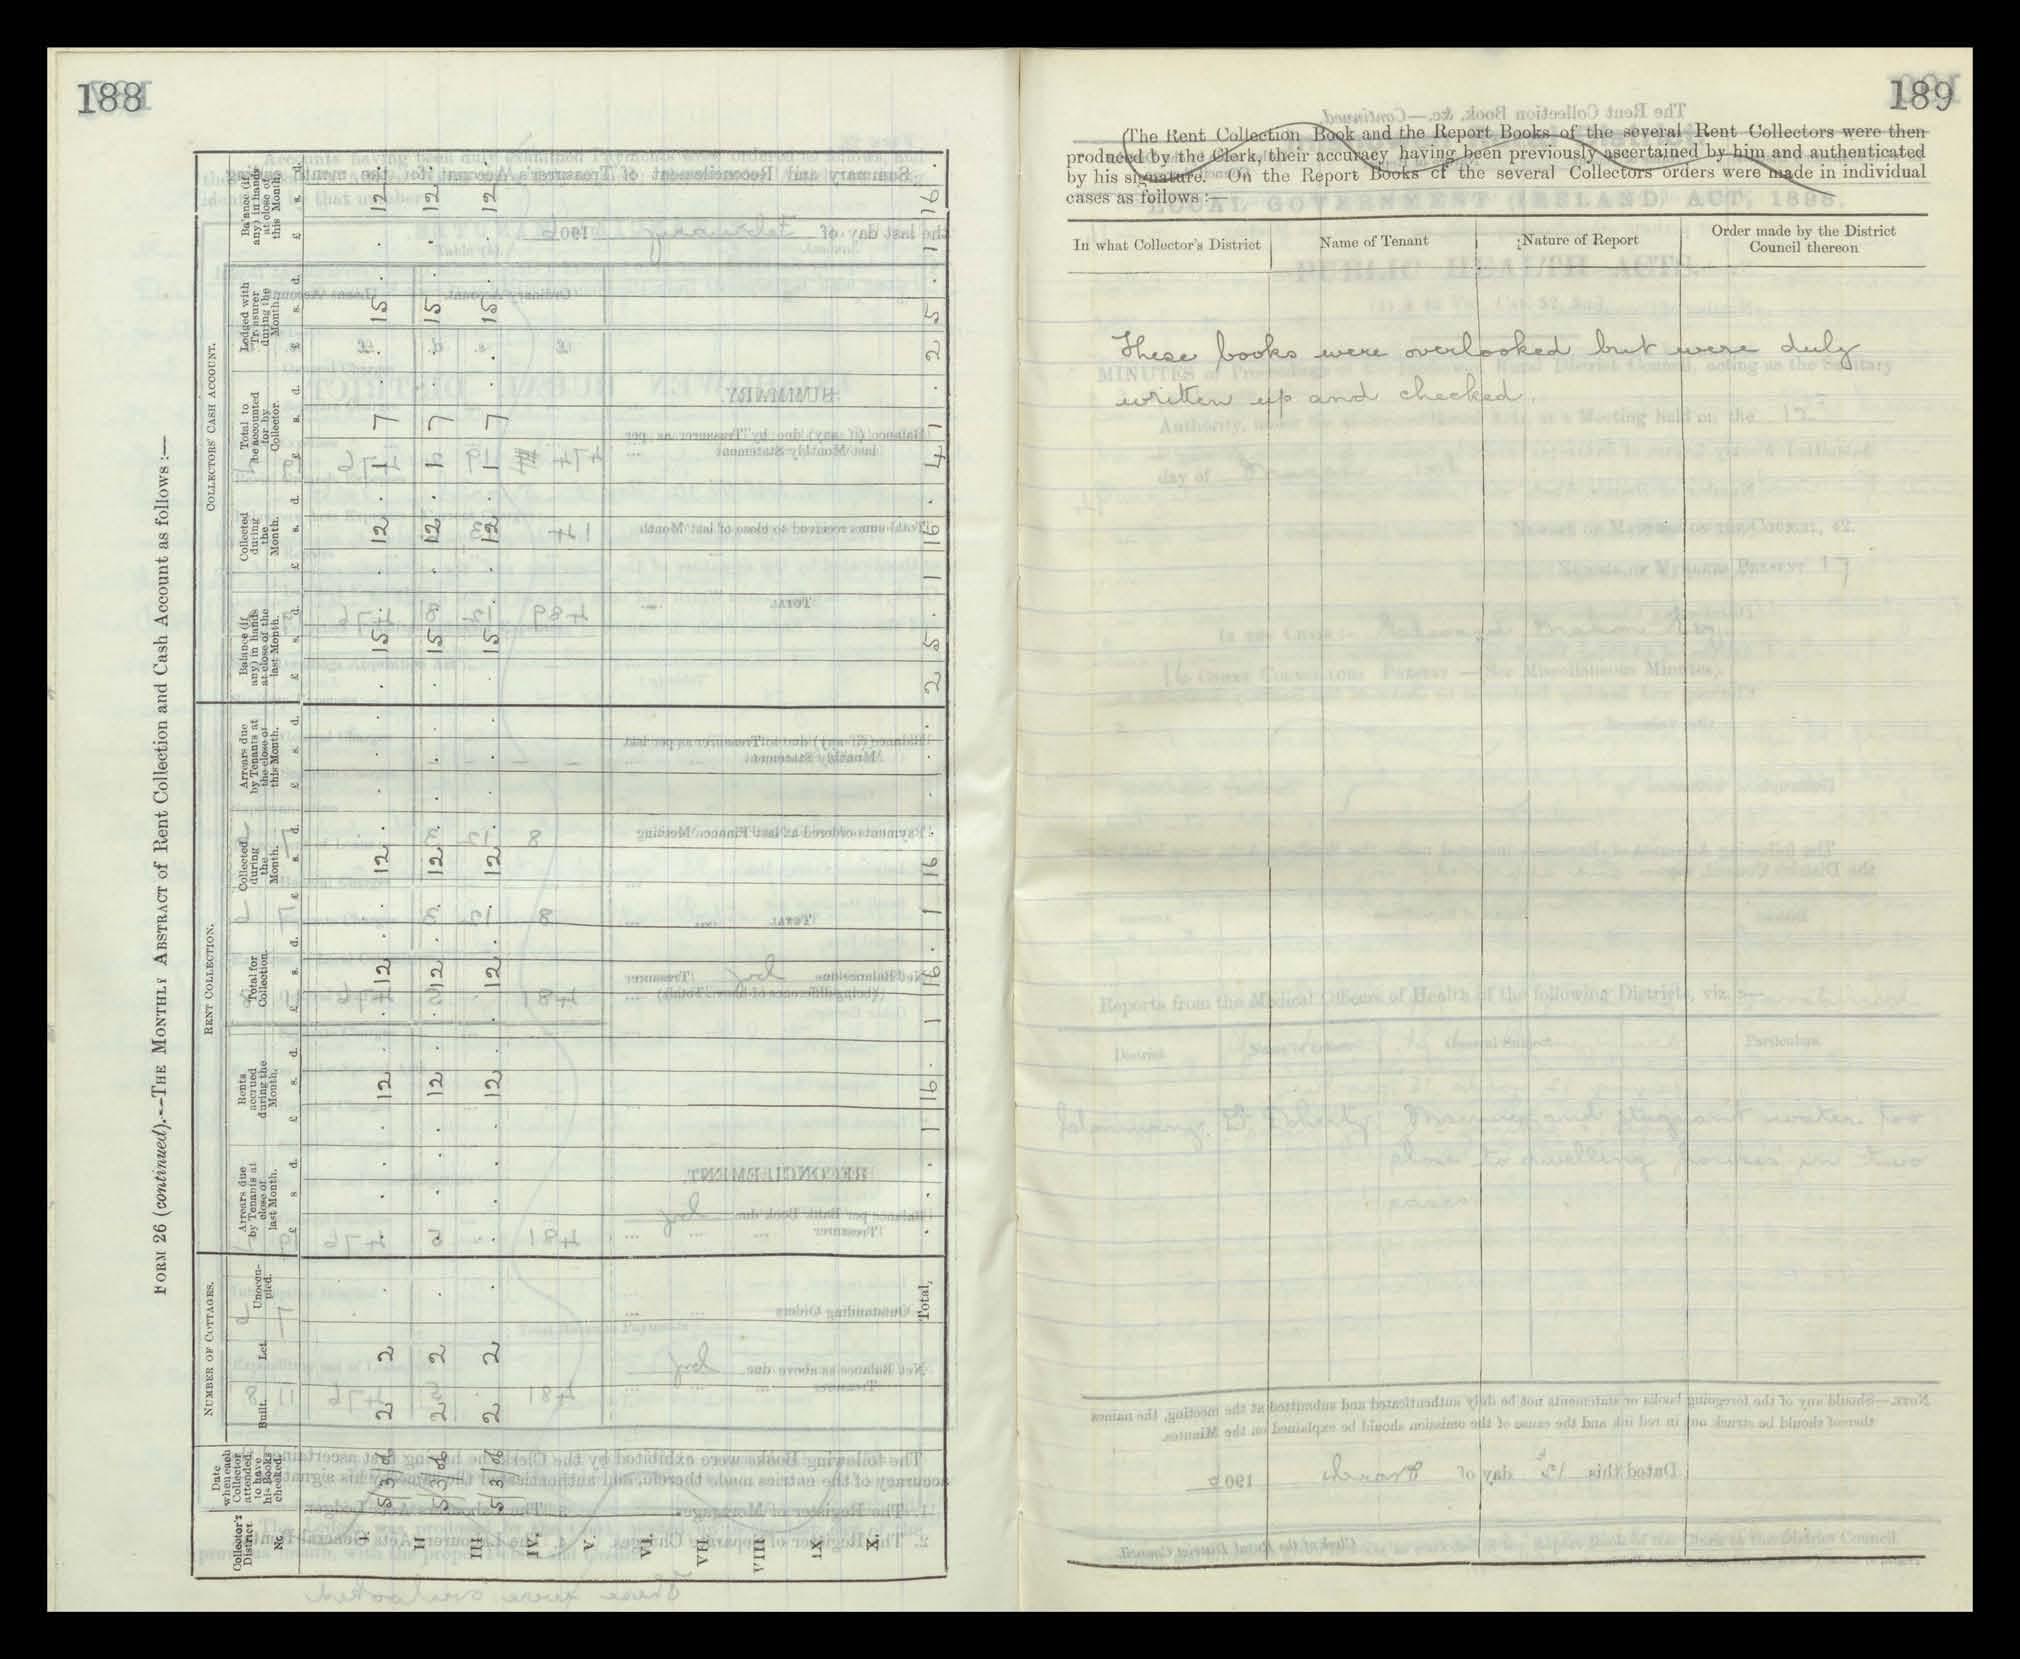 188
FORM 26 (continued).--THE MONTHLY ABSTRACT of Rent Collection and Cash Account as follows :—
Collector's District. No. | Date when each Collector attended to have his Books checked. | NUMBER OF COTTAGES. | RENT COLLECTION. | COLLECTORS' CASH ACCOUNT.
Built. | Let. | Unoccupied. | Arrears due by Tenants at close of last Month. | Rents accrued during the Month. | Total for Collection. | Collected during the Month. | Arrears due by Tenants at the close of this Month. | Balance (if any) in hands at close of the last Month. | Collected during the Month. | Total to be accounted for by Collector. | Lodged with Treasurer during the Month. | Balance (if any) in hands at close of this Month.
£ s. d. | £ s. d. | £ s. d. | £ s. d. | £ s. d. | £ s. d. | £ s. d. | £ s. d. | £ s. d. | £ s. d.
I. | 5/3/06 | 2 | 2 | . | . . . | . 12 . | . 12 . | . 12 . | . . . | . 15 . | . 12 . | 1 7 . | . 15 . | . 12 .
II | 5/3/06 | 2 | 2 | . | . . . | . 12 . | . 12 . | . 12 . | . . . | . 15 . | . 12 . | 1 7 . | . 15 . | . 12 .
III | 5/3/06 | 2 | 2 | . | . . . | . 12 . | . 12 . | . 12 . | . . . | . 15 . | . 12 . | 1 7 . | . 15 . | . 12 .
IV.
V.
VI.
VII.
VIII
IX
X.
Total, | . . . | 1 16 . | 1 16 . | 1 16 . | . . . | 2 5 . | 1 16 . | 4 1 . | 2 5 . | 1 16 .
189
The Rent Collection Book and the Report Books of the several Rent Collectors were then
produced by the Clerk, their accuracy having been previously ascertained by him and authenticated
by his signature. On the Report Books of the several Collectors orders were made in individual
cases as follows :—
In what Collector's District | Name of Tenant | Nature of Report | Order made by the District Council thereon
These books were overlooked but were duly
written up and checked.